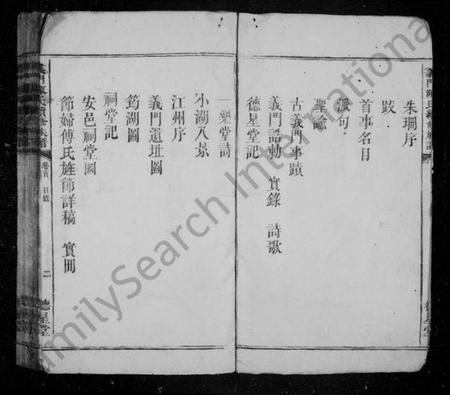 朱珊序
跋
首事名目
派句
聖諭
古義門事蹟
義門誥勅 實錄 詩歌
德星堂序
一樂堂詩
小湖八景
江州序
義門遺址圖
筠湖圖
祠堂記
安邑祠堂圖
節婦傅氏旌節詳稿 實冊
卷首 目錄 二 德星堂
FamilySearch International